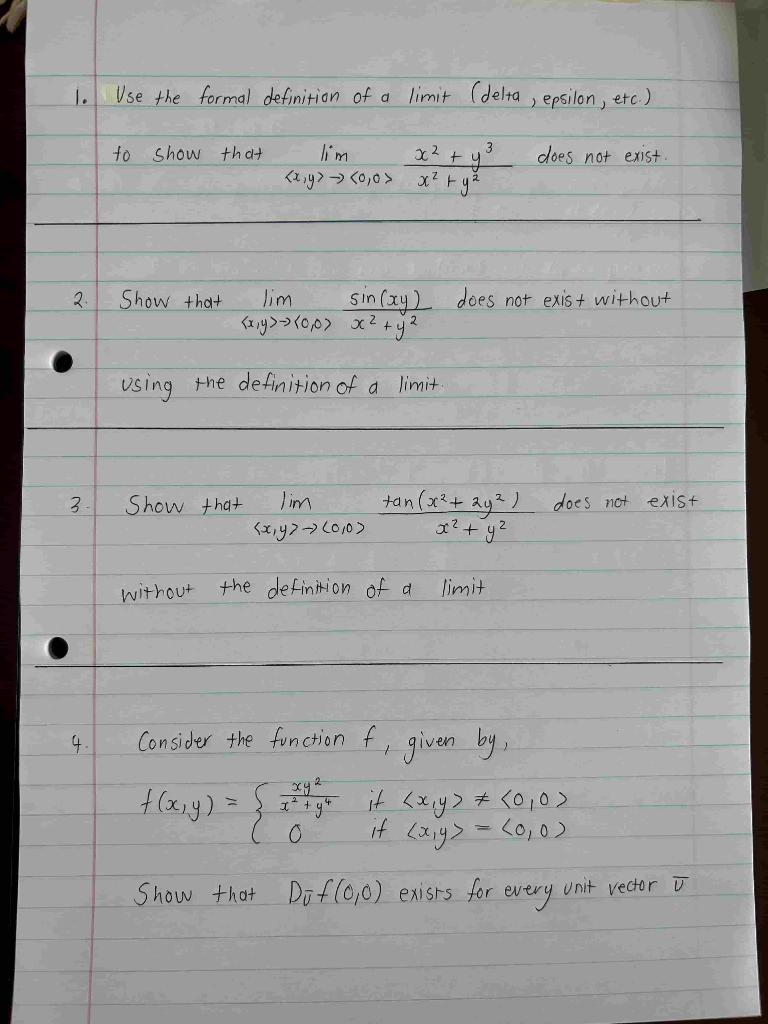 1. Use the formal definition of a limit (delta, epsilon, etc.)
to show that lim <x,y> → <0,0> x² + y³ / x² + y² does not exist.
2. Show that lim <x,y> → <0,0> sin(xy) / x² + y² does not exist without
using the definition of a limit.
3. Show that lim <x,y> → <0,0> tan(x² + 2y²) / x² + y² does not exist
without the definition of a limit
4. Consider the function f, given by,
f(x,y) = { xy² / x² + y⁴ if <x,y> ≠ <0,0>
0 if <x,y> = <0,0>
Show that Dūf(0,0) exists for every unit vector ū